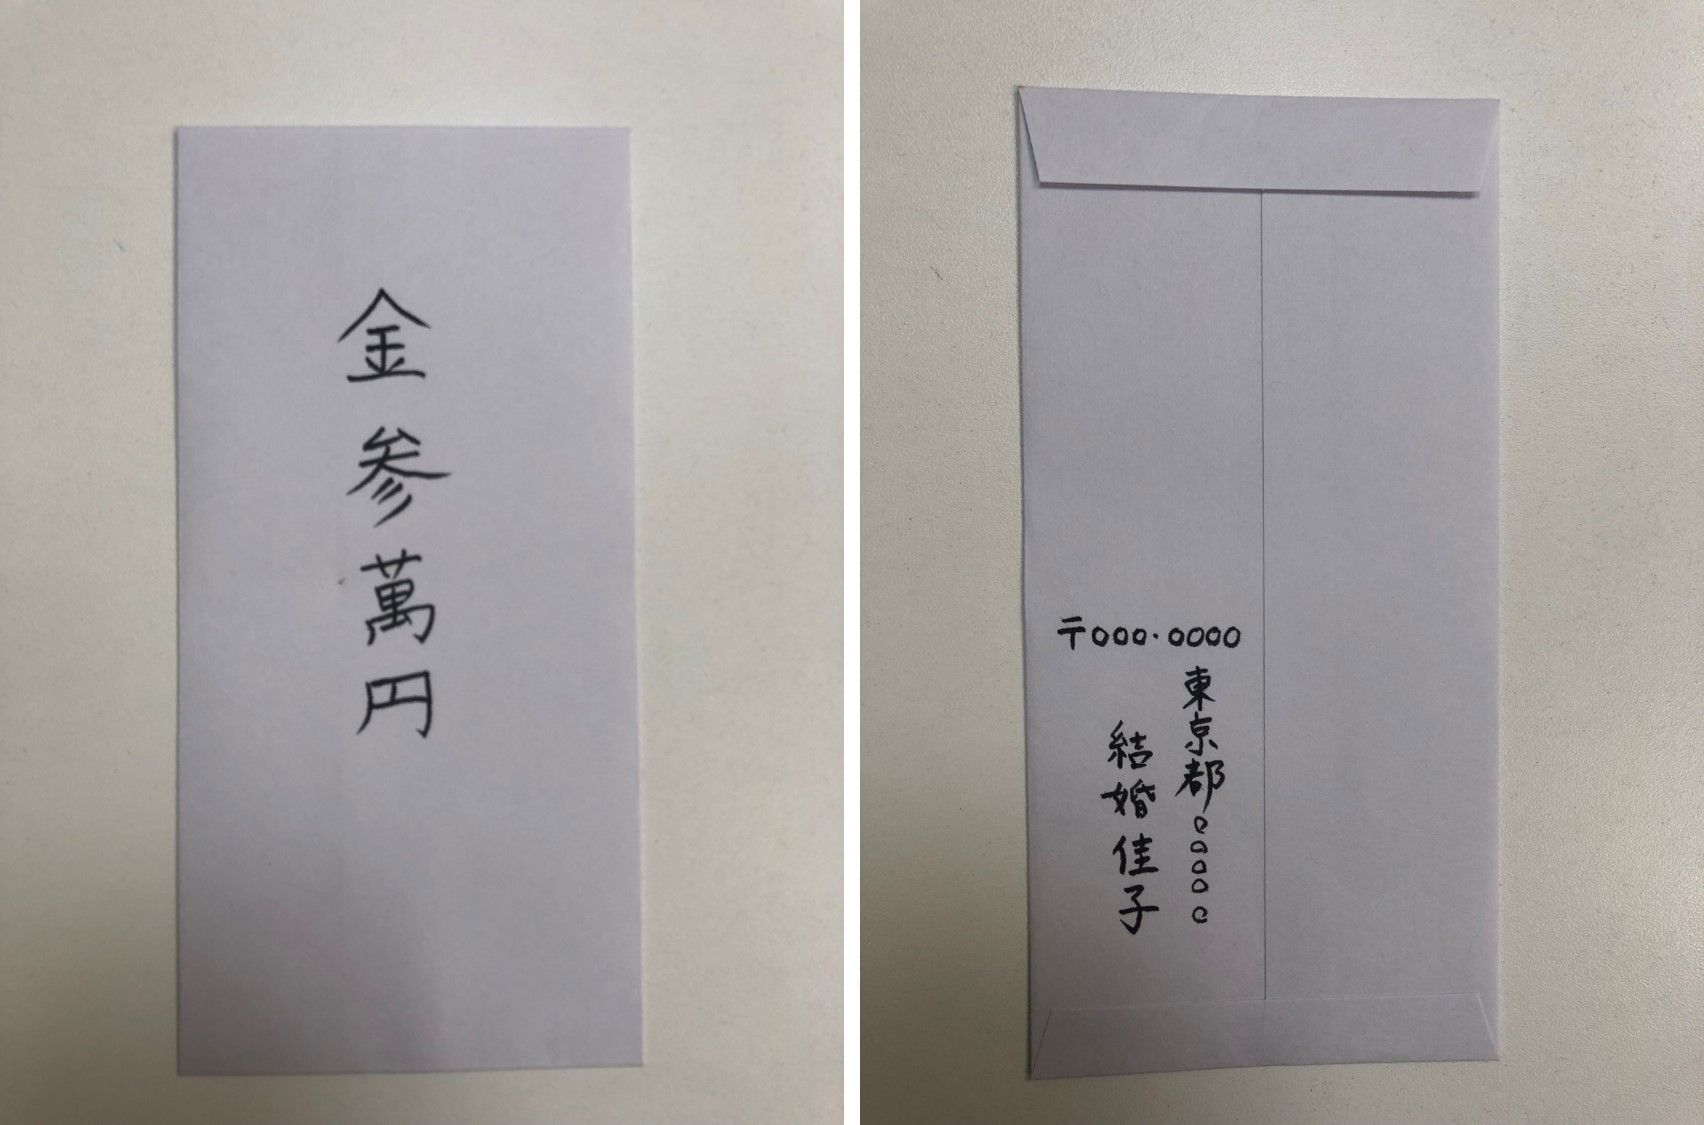 金参萬円
〒000-0000
東京都○○○○○
結婚佳子